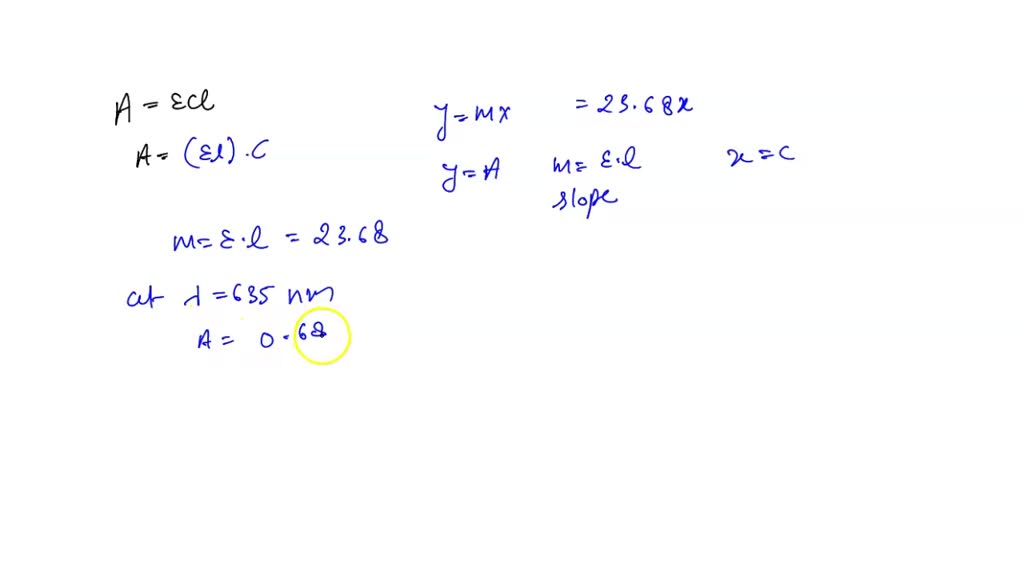 A = εcl
A = (εl) . C
y = mx = 23.68x
y = A m = ε.l x = c
slope
m = ε.l = 23.68
at λ = 635 nm
A = 0.68